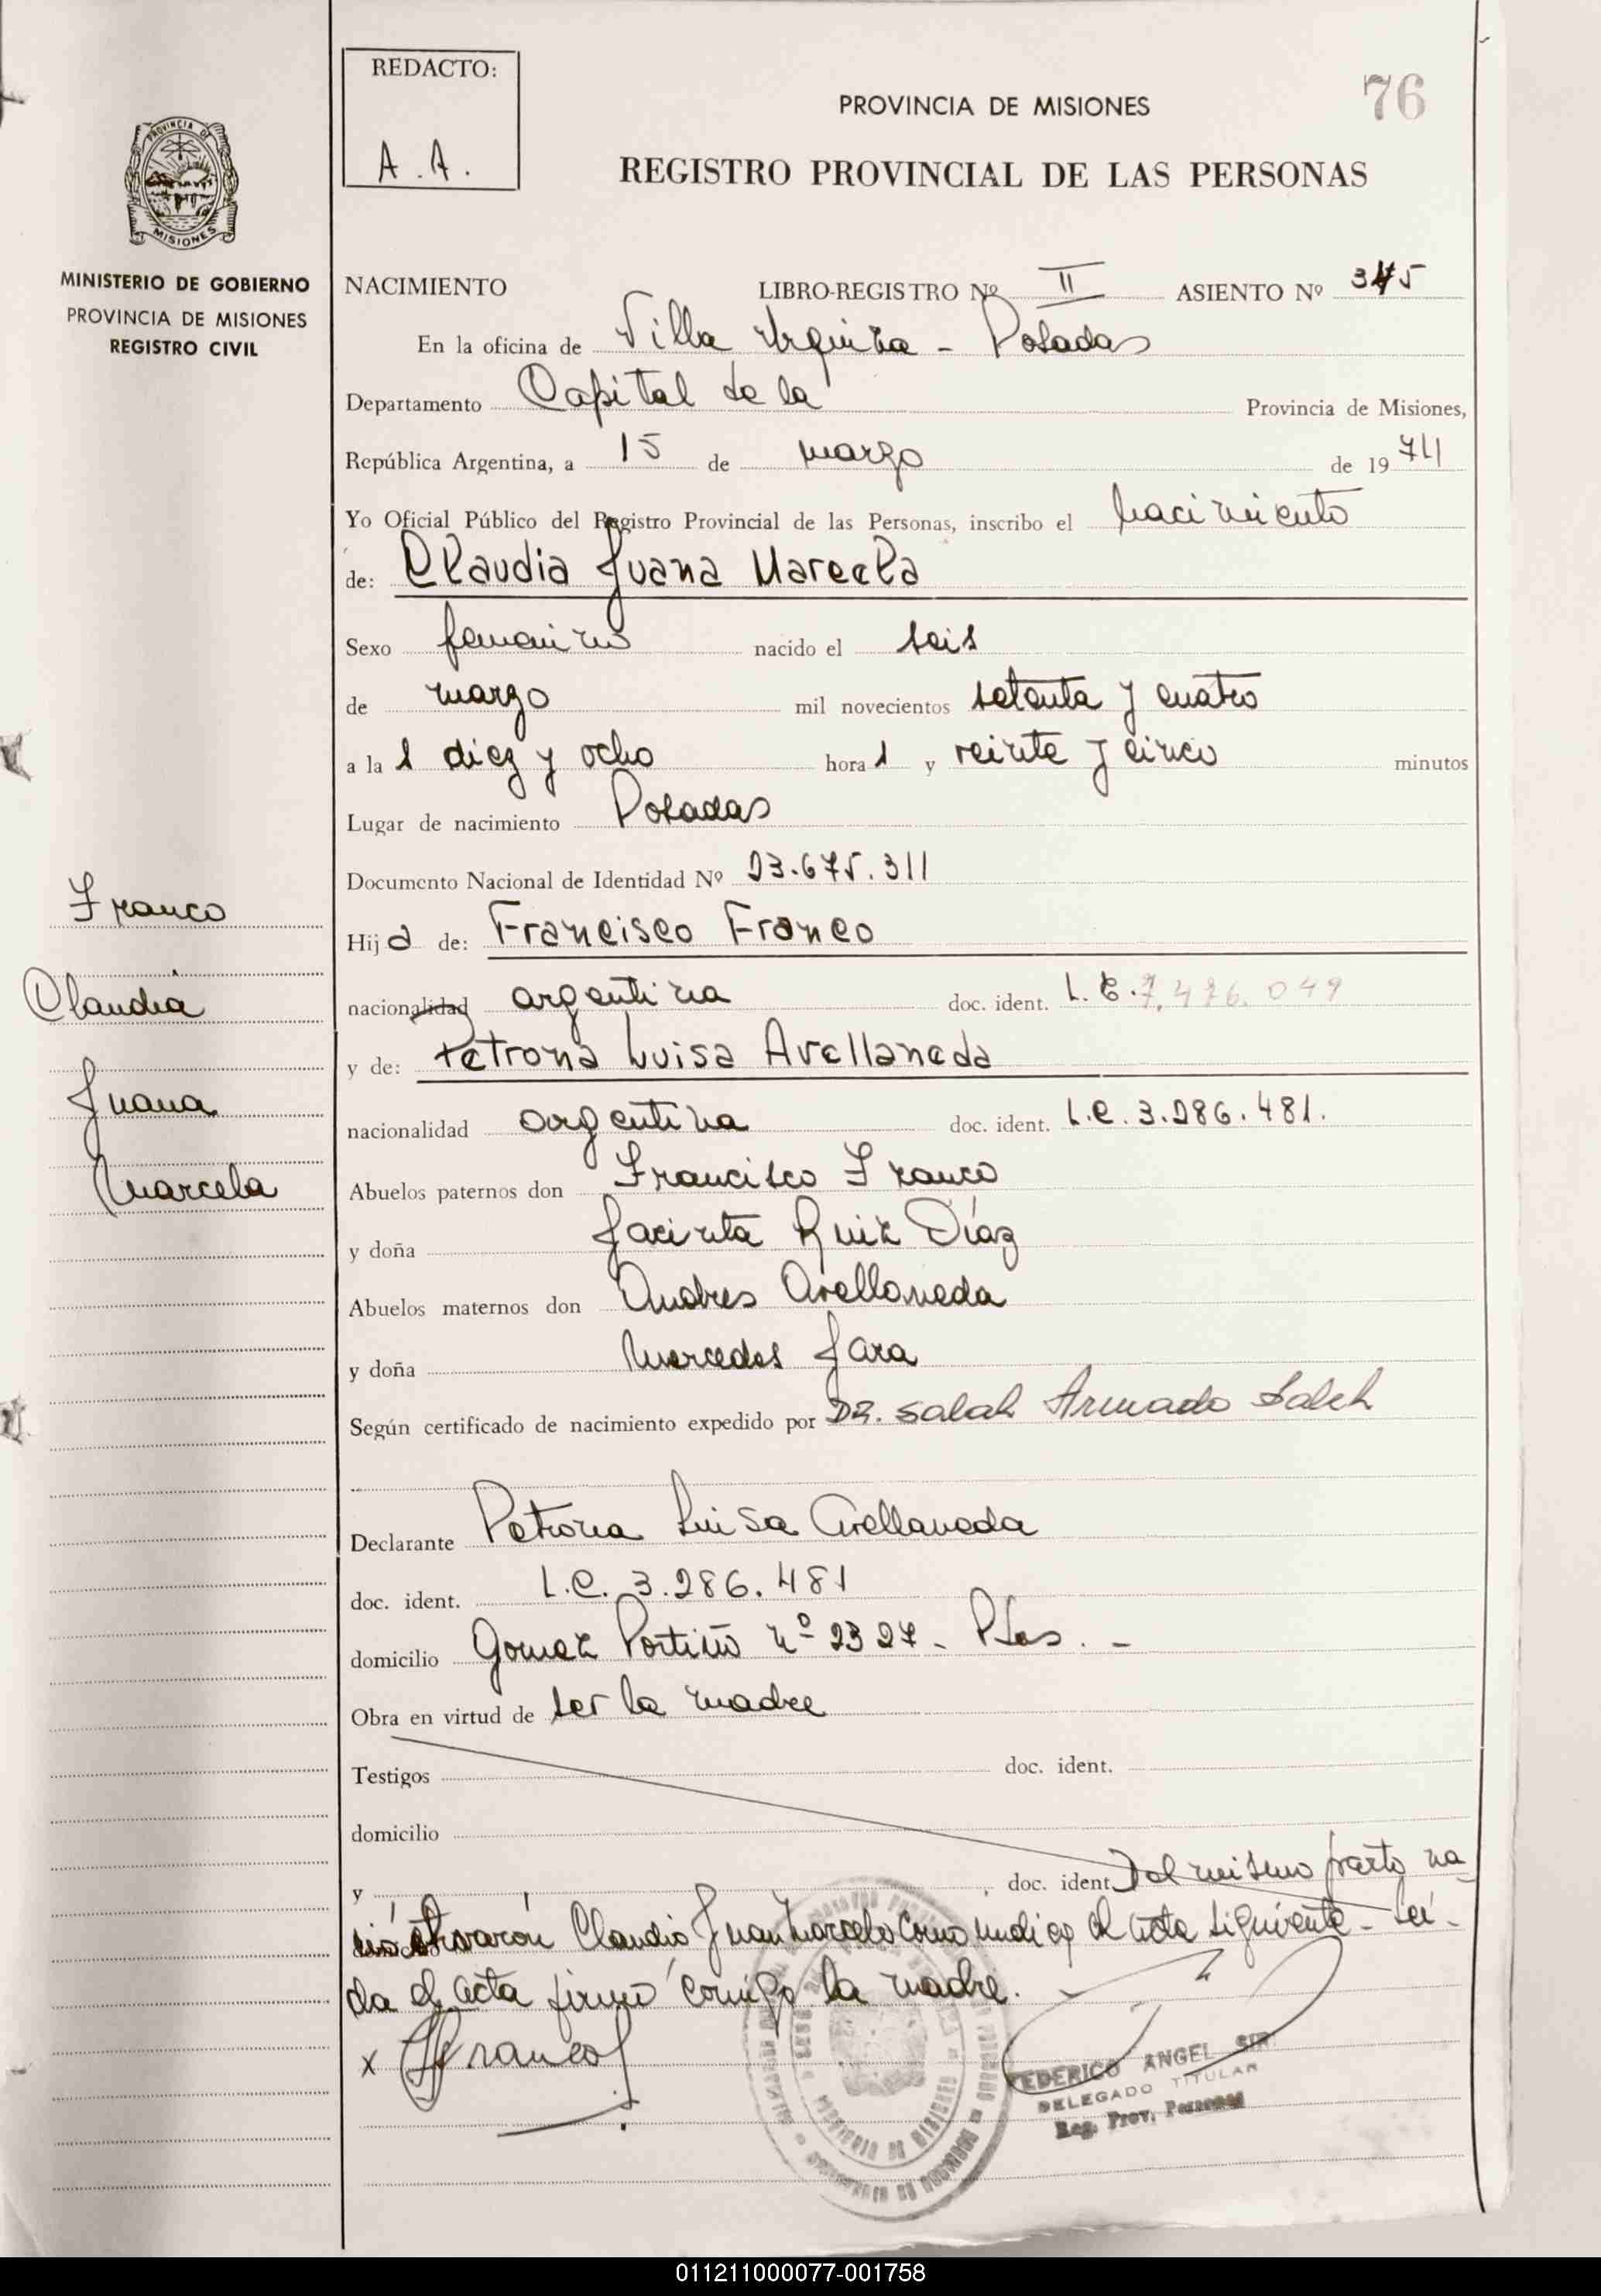 REDACTO:
A. A.
76
PROVINCIA DE MISIONES
REGISTRO PROVINCIAL DE LAS PERSONAS
PROVINCIA DE
MISIONES
MINISTERIO DE GOBIERNO
PROVINCIA DE MISIONES
REGISTRO CIVIL
NACIMIENTO LIBRO-REGISTRO Nº II ASIENTO Nº 345
En la oficina de Villa Urquiza - Posadas
Departamento Capital de la Provincia de Misiones,
República Argentina, a 15 de marzo de 1974
Yo Oficial Público del Registro Provincial de las Personas, inscribo el nacimiento
de: Claudia Juana Marcela
Sexo femenino nacido el seis
de marzo mil novecientos setenta y cuatro
a la s diez y ocho hora s y veinte y cinco minutos
Lugar de nacimiento Posadas
Documento Nacional de Identidad Nº 23.675.311
Hij a de: Francisco Franco
nacionalidad argentina doc. ident. L. E. 7.476.049
y de: Petrona Luisa Avellaneda
nacionalidad argentina doc. ident. L.C. 3.286.481.
Abuelos paternos don Francisco Franco
y doña Jacinta Ruiz Díaz
Abuelos maternos don Andres Avellaneda
y doña Mercedes Jara
Según certificado de nacimiento expedido por DR. Salah Armado Saleh
Declarante Petrona Luisa Avellaneda
doc. ident. L.C. 3.286.481
domicilio Gomez Portiño nº 2327 - Pdas. -
Obra en virtud de ser la madre
Testigos doc. ident.
domicilio
y , doc. ident. Del mismo parto na
ció el varón Claudio Juan Marcelo como indica el acta siguiente - Leí-
da el acta firmó conmigo la madre.
x Franco
FEDERICO ANGEL
DELEGADO TITULAR
Reg. Prov. Personas
Franco
Claudia
Juana
Marcela
011211000077-001758